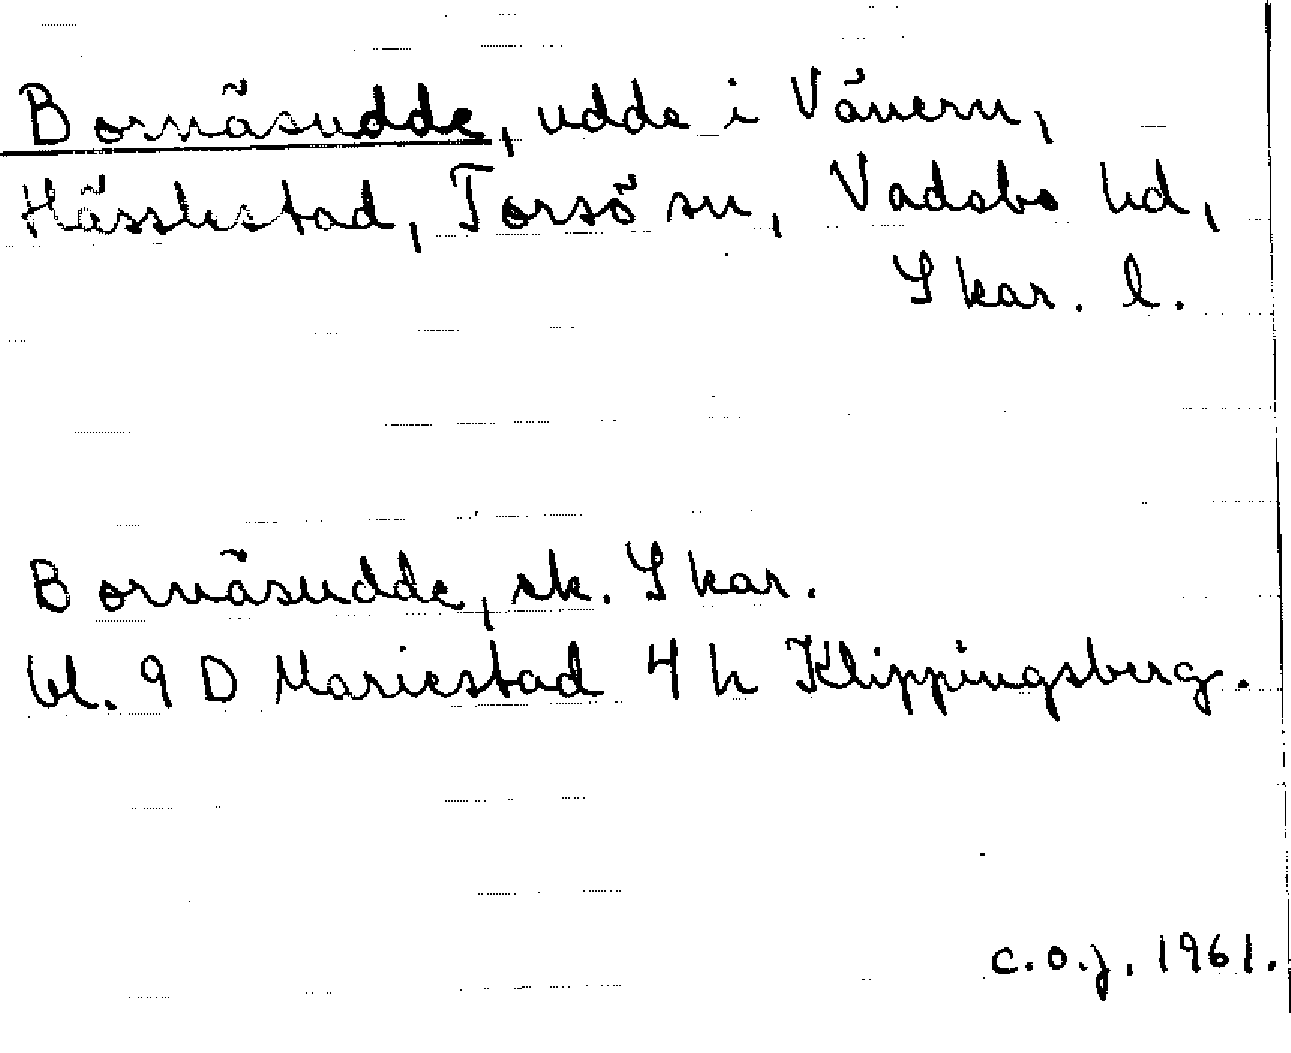 Bornäsudde, udde i Vänern,
Hässlestad, Torsö sn, Vadsbo hd,
Skar. l.
Bornäsudde, ek. Skar.
bl. 9 D Mariestad 4 h Klippingsberg.
C.O.J. 1961.